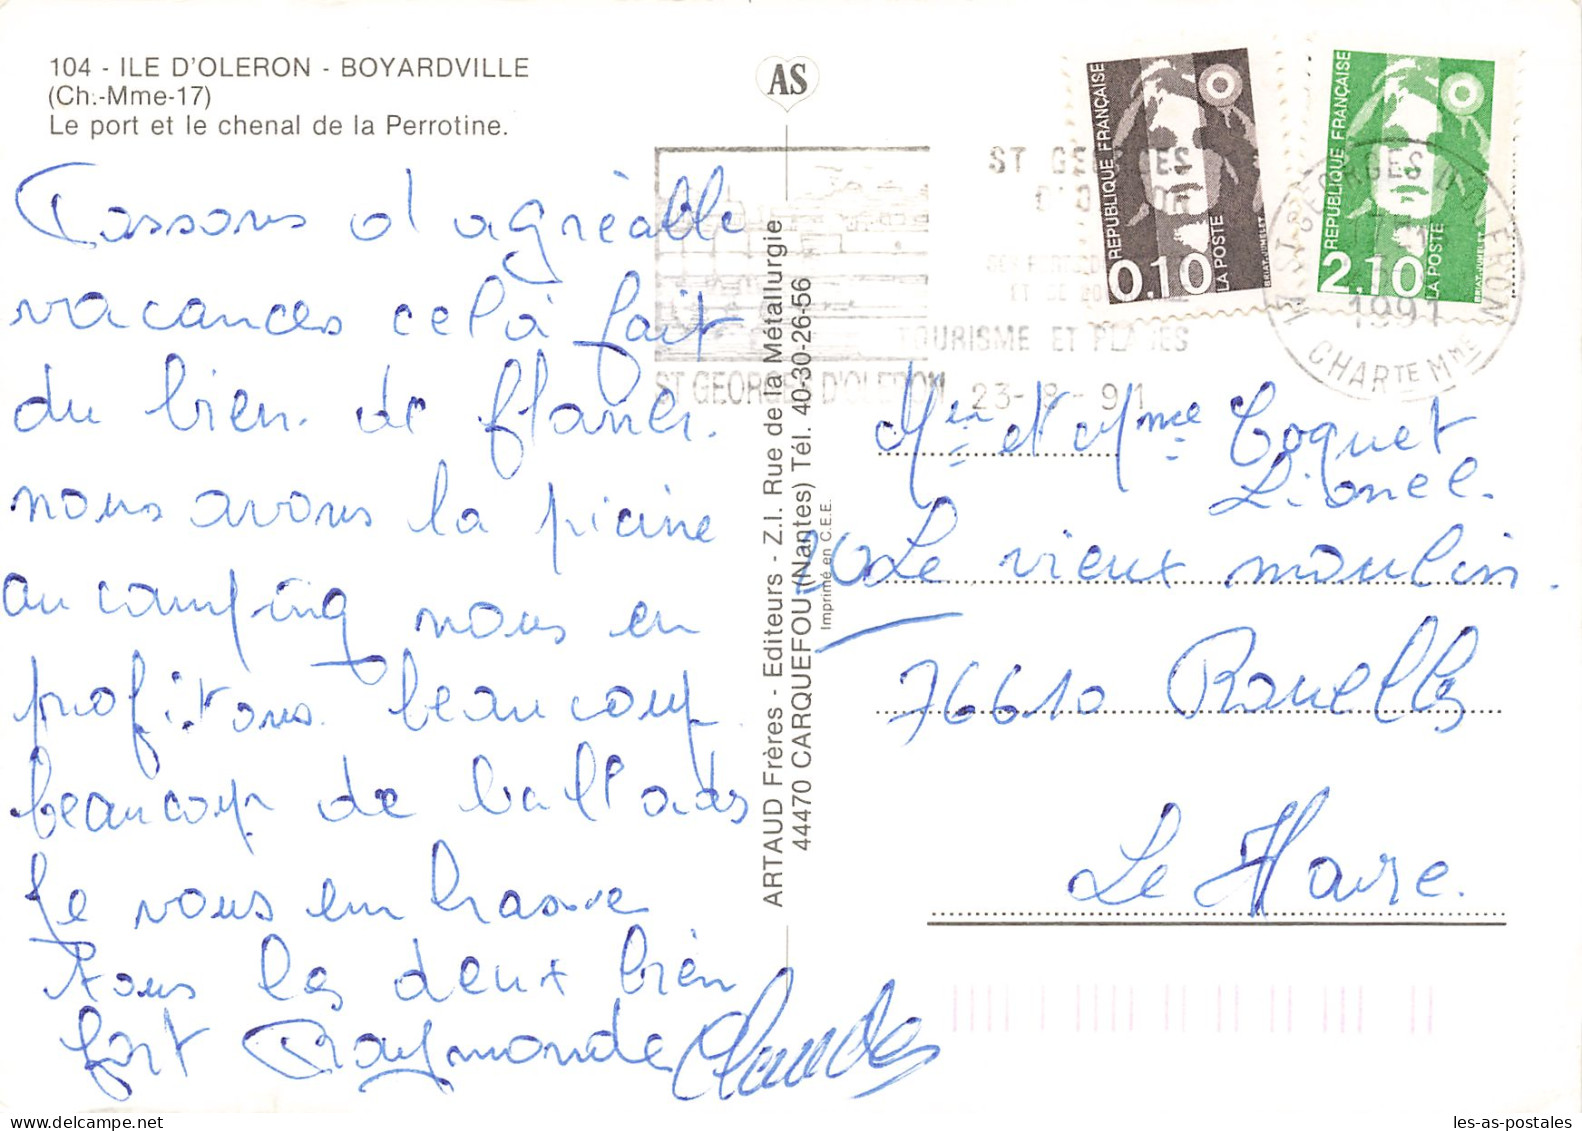 104 - ILE D'OLERON - BOYARDVILLE
(Ch.-Mme-17)
Le port et le chenal de la Perrotine.
Passons d agréable
vacances celà fait
du bien. de flaner.
nous avons la picine
au camping nous en
profitons. beaucoup
beaucoup de ballads
Je vous embrasse
tous les deux bien
fort Raymonde Claude
AS
ARTAUD Frères - Editeurs - Z.I. Rue de la Métallurgie
44470 CARQUEFOU (Nantes) Tél. 40-30-26-56
Imprimé en C.E.E.
ST GEORGES
D'OLERON
TOURISME ET PLAGES
ST GEORGES D'OLERON 23-8-91
RÉPUBLIQUE FRANÇAISE
0,10
LA POSTE
BRIAT-JUMELET
RÉPUBLIQUE FRANÇAISE
2,10
LA POSTE
BRIAT-JUMELET
ST GEORGES D'OLERON
1991
CHARTE Mme
et Mme Coquet
Lionel.
20 Le vieux moulin.
76610 Rouelles
Le Havre.
les-as-postales